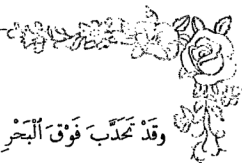 وقَدْ تَحَدَّبَ فَوْقَ ٱلْبَحْرِ